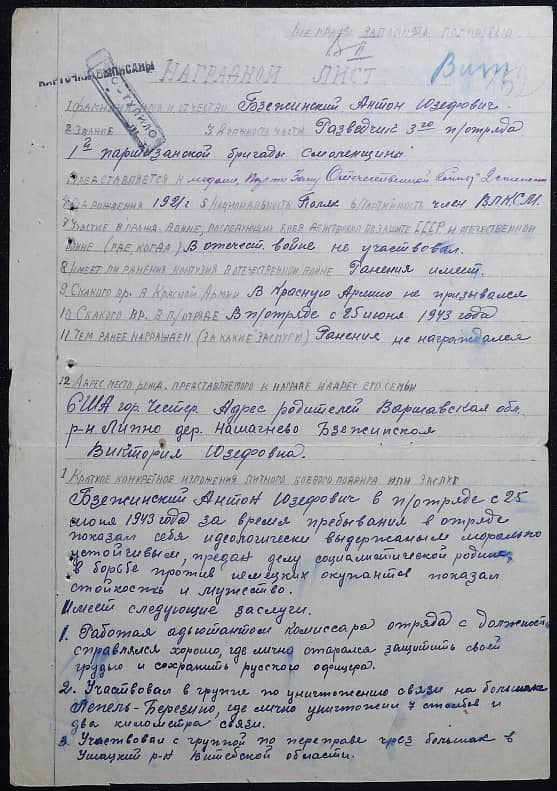 НАГРАДНОЙ ЛИСТ
Вит
КАРТОЧКИ ВЫПИСАНЫ
1 ФАМИЛИЯ ИМЯ И ОТЧЕСТВО Бзежинский Антон Юзефович.
2 ЗВАНИЕ 3 ДОЛЖНОСТЬ ЧАСТИ Разведчик 3го п/отряда
1й партизанской бригады Смоленщины
ПРЕДСТАВЛЯЕТСЯ К медали, Отечественной войны" 2 степени
РОЖДЕНИЯ 1921г 5 НАЦИОНАЛЬНОСТЬ Поляк 6 ПАРТИЙНОСТЬ член ВЛКСМ.
7 УЧАСТИЕ В ГРАЖД. ВОЙНЕ, ПОСЛЕДУЮЩИХ БОЕВ. ДЕЙСТВИЯХ ПО ЗАЩИТЕ СССР И ОТЕЧЕСТВЕННОЙ
ВОЙНЕ (ГДЕ, КОГДА) В отечест. войне не участвовал.
8 ИМЕЕТ ЛИ РАНЕНИЯ КОНТУЗИЯ В ОТЕЧЕСТВЕННОЙ ВОЙНЕ Ранения имеет.
9 С КАКОГО ВР. В КРАСНОЙ АРМИИ В Красную Армию не призывался
10 С КАКОГО ВР. В П/ОТРЯДЕ В п/отряде с 25 июня 1943 года
11 ЧЕМ РАНЕЕ НАГРАЖДЕН (ЗА КАКИЕ ЗАСЛУГИ) Ранения не награждался
12 АДРЕС МЕСТО РОЖД. ПРЕДСТАВЛЯЕМОГО К НАГРАДЕ И АДРЕС ЕГО СЕМЬИ
США гор. Честер. Адрес родителей Варшавская обл.
р-н Липно дер. Бзежинской
Виктория Юзефовна.
1 КРАТКОЕ КОНКРЕТНОЕ ИЗЛОЖЕНИЯ ЛИЧНОГО БОЕВОГО ПОДВИГА ИЛИ ЗАСЛУГ
Бзежинский Антон Юзефович в п/отряде с 25
июня 1943 года за время пребывания в отряде
показал себя идеологически выдержаным морально
устойчивым, предан делу социалистической родине,
в борьбе против немецких окупантов показал
стойкость и мужество.
Имеет следующие заслуги.
1. Работая адьютантом комиссара отряда с должность
справлялся хорошо, где лично старался защитить своей
грудью и сохранить русского офицера.
2. Участвовал в группе по уничтожению связи на большаке
Лепель-Березино, где лично уничтожил 7 столбов и
два километра связи.
3. Участвовал с группой по переправе чрез большак в
Ушацкий р-н Витебской области.